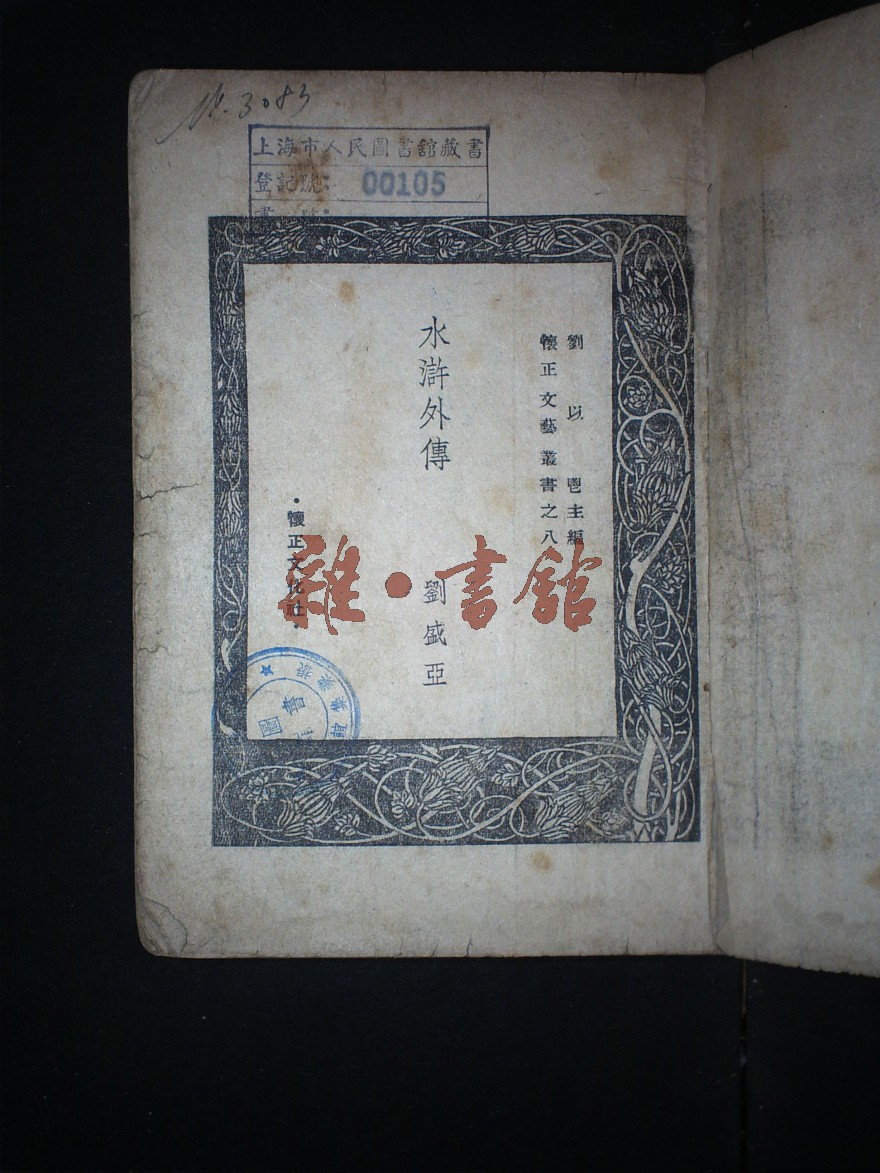 №. 3083
上海市人民圖書館藏書
登記號: 00105
書
劉以鬯主編
懷正文藝叢書之八
水滸外傳
劉盛亞
·懷正文化社·
雜·書館
圖書